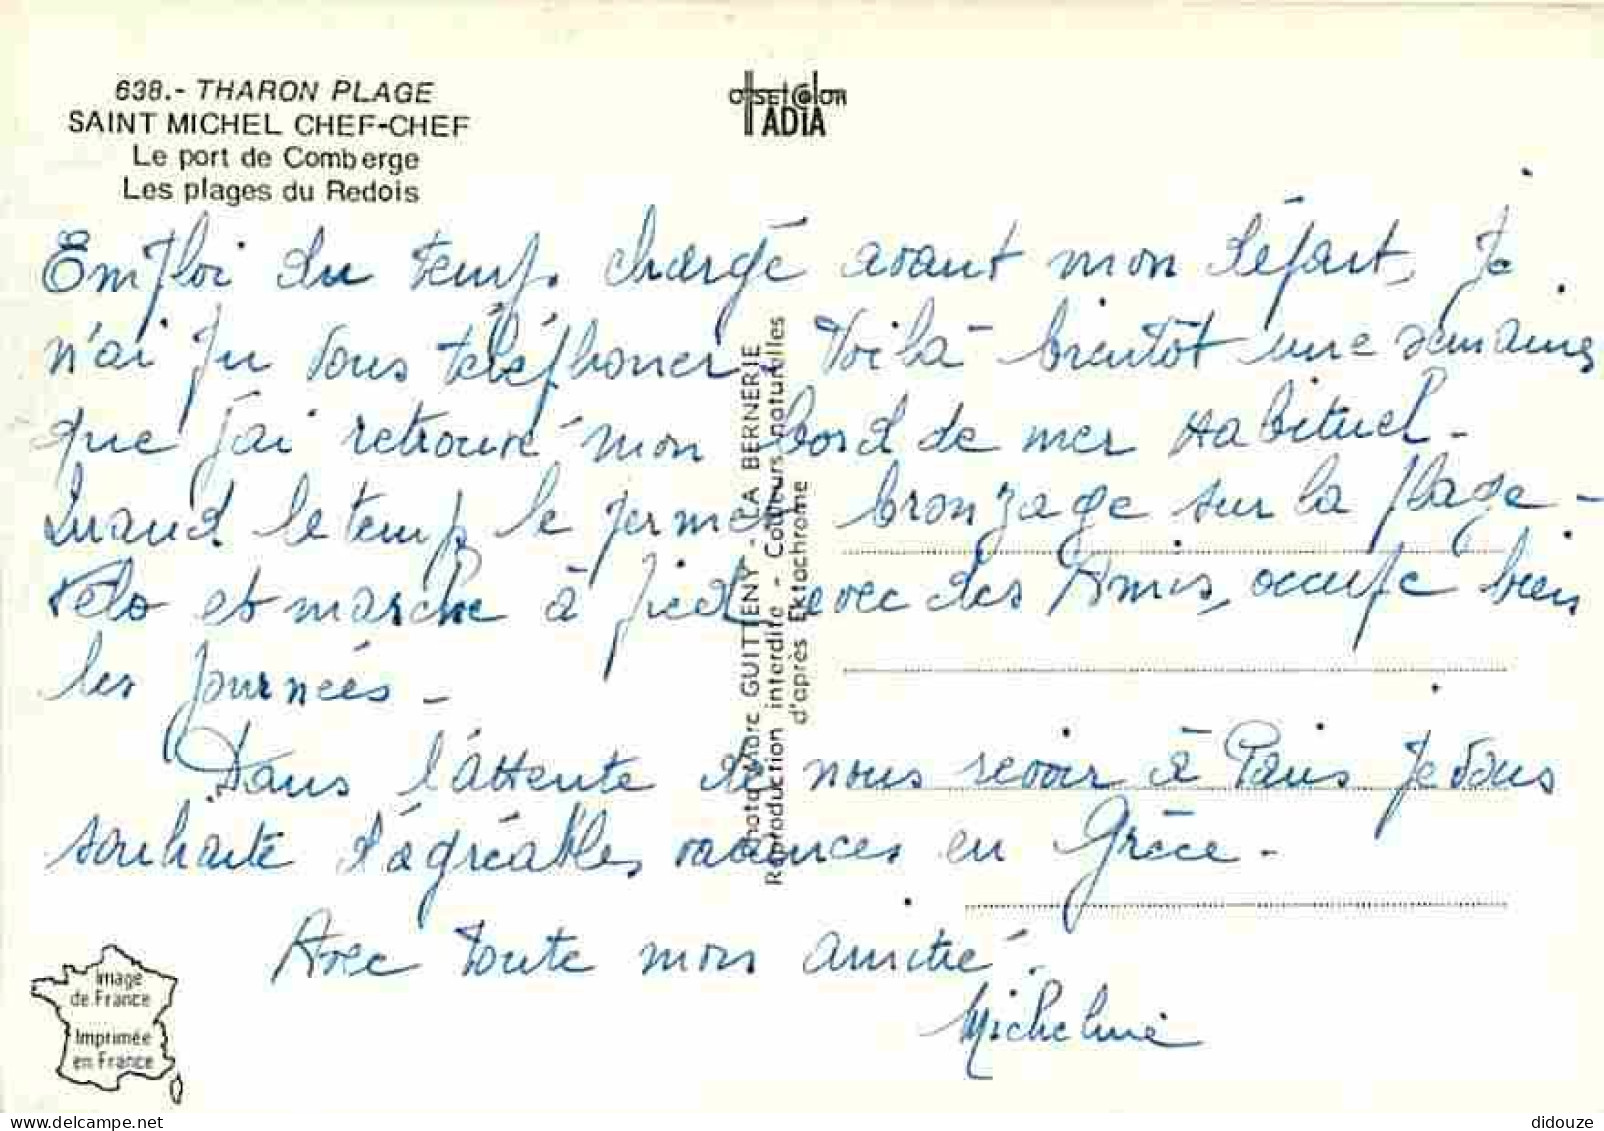 638.- THARON PLAGE
SAINT MICHEL CHEF-CHEF
Le port de Comberge
Les plages du Redois
OffsetColor
ADIA
Emploi du temps chargé avant mon départ, Je
n'ai pu vous téléphoner. Voilà bientôt une semaine
que j'ai retrouvé mon bord de mer Habituel -
Quand le temps le permet bronzage sur la plage -
Vélo et marche à pied avec des Amis, occupe bien
les journées -
Dans l'attente de nous revoir à Paris Je vous
souhaite d'agréables vacances en Grèce -
Avec toute mon amitié.
Micheline
Photo Marc GUITTENY - LA BERNERIE
Reproduction interdite - Couleurs naturelles
d'après Ektachrome
Image
de France
Imprimée
en France
didouze
www.delcampe.net